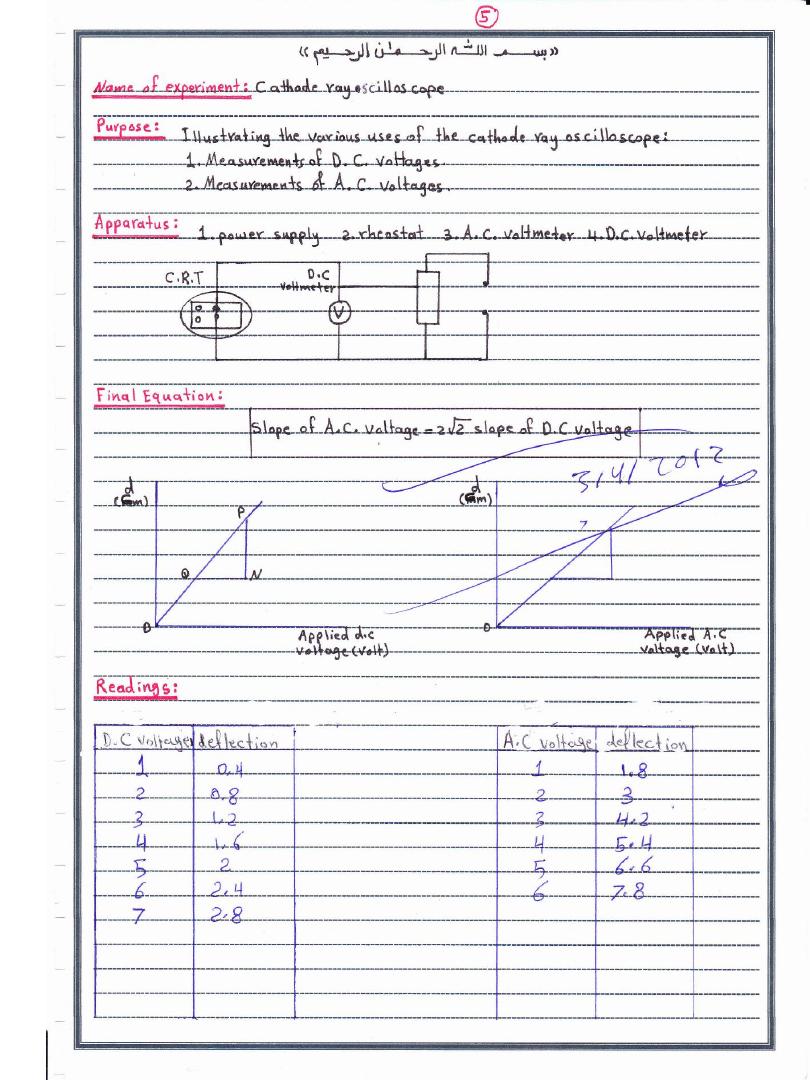 5
«بسم الله الرحمن الرحيم»
Name of experiment: Cathode ray oscilloscope
Purpose: Illustrating the various uses of the cathode ray oscilloscope:
1. Measurements of D.C. voltages
2. Measurements of A.C. voltages.
Apparatus: 1. power supply 2. rheostat 3. A.C. voltmeter 4. D.C. voltmeter
C.R.T D.C
voltmeter
V
Final Equation:
Slope of A.C. voltage = 2√2 slope of D.C voltage
3/4/2012
d d
(cm) (cm)
P
Q N
O O
Applied d.c Applied A.C
voltage (volt) voltage (volt)
Readings:
D.C voltage deflection A.C voltage deflection
1 0.4 1 1.8
2 0.8 2 3
3 1.2 3 4.2
4 1.6 4 5.4
5 2 5 6.6
6 2.4 6 7.8
7 2.8